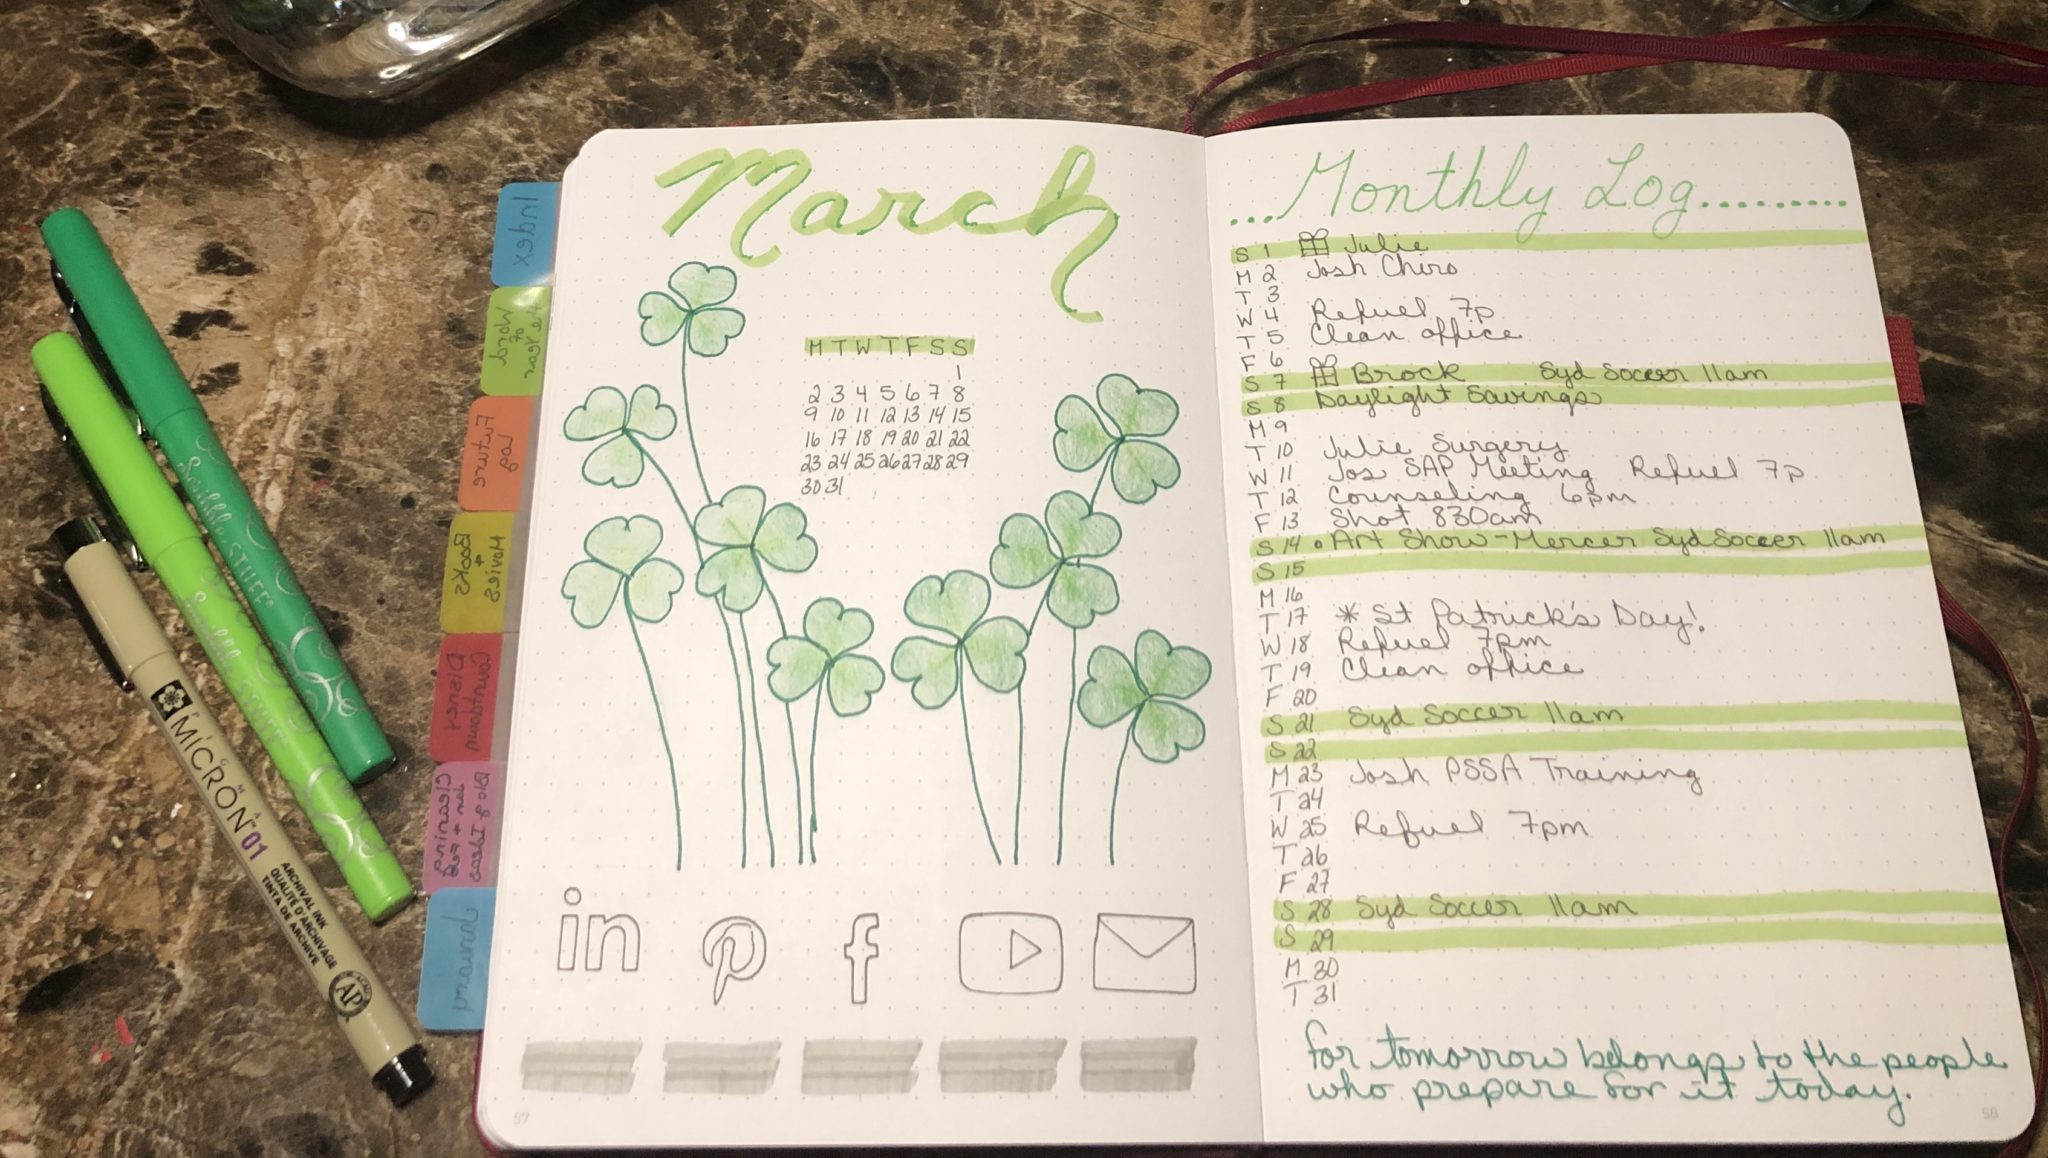 March
M T W T F S S
1
2 3 4 5 6 7 8
9 10 11 12 13 14 15
16 17 18 19 20 21 22
23 24 25 26 27 28 29
30 31
in
f
57
...Monthly Log.........
S 1 Julie
M 2 Josh Chiro
T 3
W 4 Refuel 7p
T 5 Clean office
F 6
S 7 Brock Syd Soccer 11am
S 8 Daylight Savings
M 9
T 10 Julie Surgery
W 11 Jos SAP Meeting Refuel 7p
T 12 Counseling 6pm
F 13 Shot 830am
S 14 • Art Show-Mercer Syd Soccer 11am
S 15
M 16
T 17 * St Patrick's Day!
W 18 Refuel 7pm
T 19 Clean office
F 20
S 21 Syd Soccer 11am
S 22
M 23 Josh PSSA Training
T 24
W 25 Refuel 7pm
T 26
F 27
S 28 Syd Soccer 11am
S 29
M 30
T 31
for tomorrow belongs to the people
who prepare for it today.
58
Index
Future
Log
Movies
+
Books
Cleaning
Blog Ideas
Journal
Scribble STUFF
Scribble STUFF
MICRON 01
ARCHIVAL INK
QUALITÉ D'ARCHIVAGE
TINTA DE ARCHIVE
AP